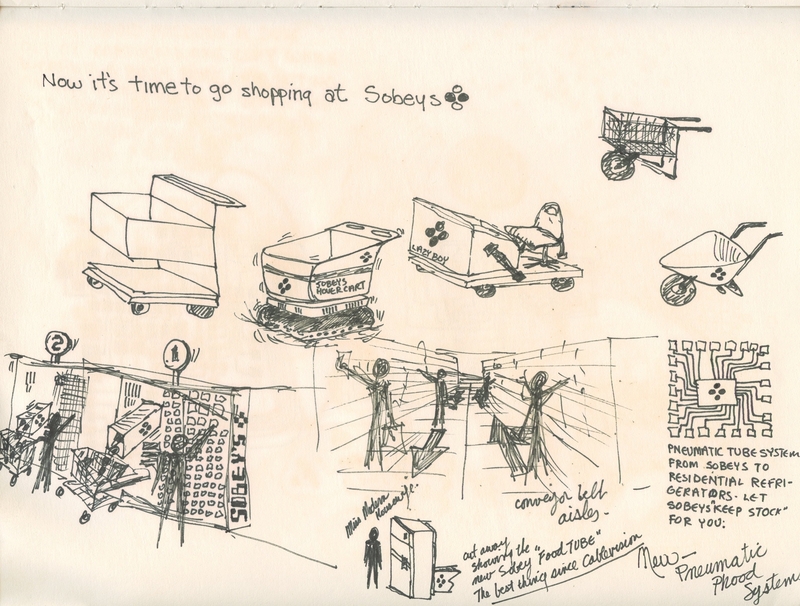 Now it's time to go shopping at Sobeys
LAZYBOY
SOBEYS
HOVERCART
2
1
SOBEY'S
PNEUMATIC TUBE SYSTEM
FROM SOBEYS TO
RESIDENTIAL REFRI-
GERATORS. LET
SOBEYS "KEEP STOCK"
FOR YOU:
conveyor belt
aisles-
Miss Modern
Housewife-
cut away
showing the
new Sobey "Food TUBE"
The best thing since Cablevision
New-
Pneumatic
Phood
Systems